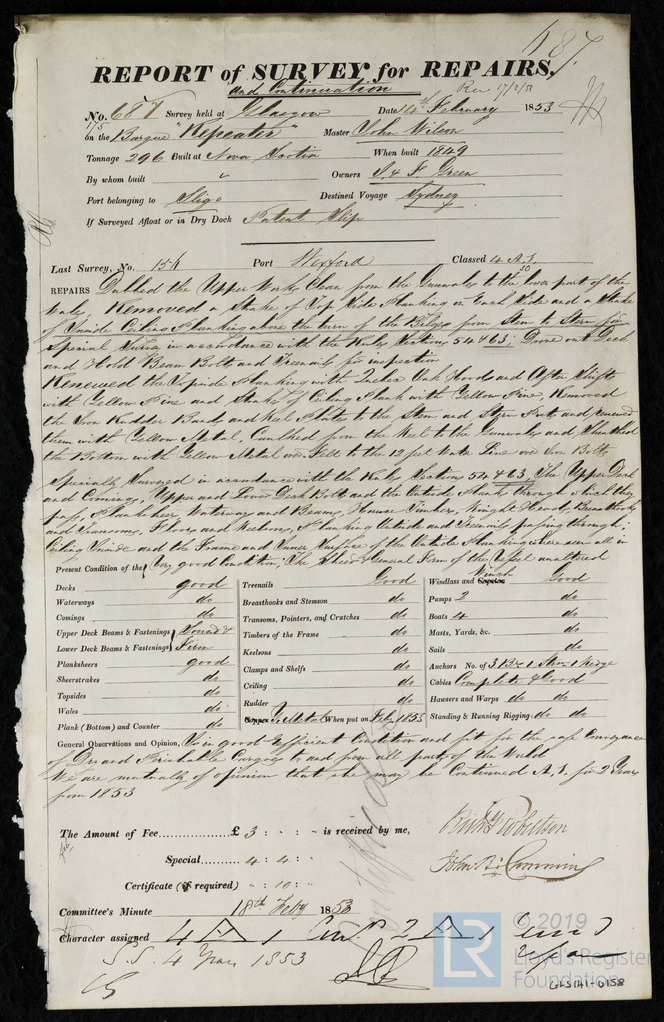 687.
REPORT of SURVEY for REPAIRS,
and Continuation
Rec 17/2/53
No. 687 Survey held at Glasgow Date 14th February 1853
on the Barque "Repeater" Master John Wilson
Tonnage 296 Built at Nova Scotia When built 1849
By whom built " Owners S. & F. Green
Port belonging to Sligo Destined Voyage Sydney
If Surveyed Afloat or in Dry Dock Patent Slip
Last Survey, No. 151 Port Wexford Classed 4 A.1.
50
REPAIRS Dubbed the Upper Works Clean from the Gunwales to the lower part of the
Wales, Removed a Strake of Top Side Planking on Each Side and a Strake
of Inside Ceiling Planking above the turn of the Bilges from Stem to Stern for
Special Survey in accordance with the Rules Sections 54 & 63; Drove out Deck
and Hold Beam Bolts and Treenails for inspection
Renewed the Topside Planking with Quebec Oak Hoods and After Shifts
with Yellow Pine and Strake of Ceiling Plank with Yellow Pine, Removed
the Iron Rudder Bands and Keel Plates to the Stem and Stern Posts and renewed
them with Yellow Metal, Caulked from the Keel to the Gunwales and Sheathed
the Bottom with Yellow Metal over Felt to the 12 feet Water Line over Iron Bolts
Specially Surveyed in accordance with the Rules Sections 54 & 63, The Upper Deck
and Comings, Upper and Lower Deck Bolts and the Outside Planks through which they
pass, Planksheer Waterways and Beams, Hawse Timbers, Knight Heads, Breasthooks
and Transoms, Floors and Keelsons, Planking Outside and Treenails passing through;
Ceiling Inside and the Frame and Inner Surface of the Outside Planking where seen all in
Present Condition of the Very good Condition; The Sheer & General Form of this Vessel unaltered
Decks good
Waterways do
Comings do
Upper Deck Beams & Fastenings Sound &
Lower Deck Beams & Fastenings Firm
Planksheers good
Sheerstrakes do
Topsides do
Wales do
Plank (Bottom) and Counter do
Treenails Good
Breasthooks and Stemson do
Transoms, Pointers, and Crutches do
Timbers of the Frame do
Keelsons do
Clamps and Shelfs do
Ceiling do
Rudder do
Copper Y. Metal When put on Feby 1853
Windlass and Capstan Winch Good
Pumps 2 do
Boats 4 do
Masts, Yards, &c. do
Sails do
Anchors No. of 3 Brs 1 Strm 1 Kedge
Cables Complete & Good
Hawsers and Warps do do
Standing & Running Rigging do do
General Observations and Opinion, Is in good Efficient Condition and fit for the safe Conveyance
of Dry and Perishable Cargoes to and from all parts of the World
We are mutually of opinion that she may be Continued A.1. for 2 Years
from 1853
The Amount of Fee £ 3 : " : " is received by me,
Special 4 : 4 : "
Certificate (if required) " : 10 : "
Robertson
John B. Cummins
Committee's Minute 18th Feby 1853
Character assigned 4 A 1 Cont. 2 A 1
2 years
S.S. 4 Years 1853
© 2019
LR
Lloyd's Register
Foundation